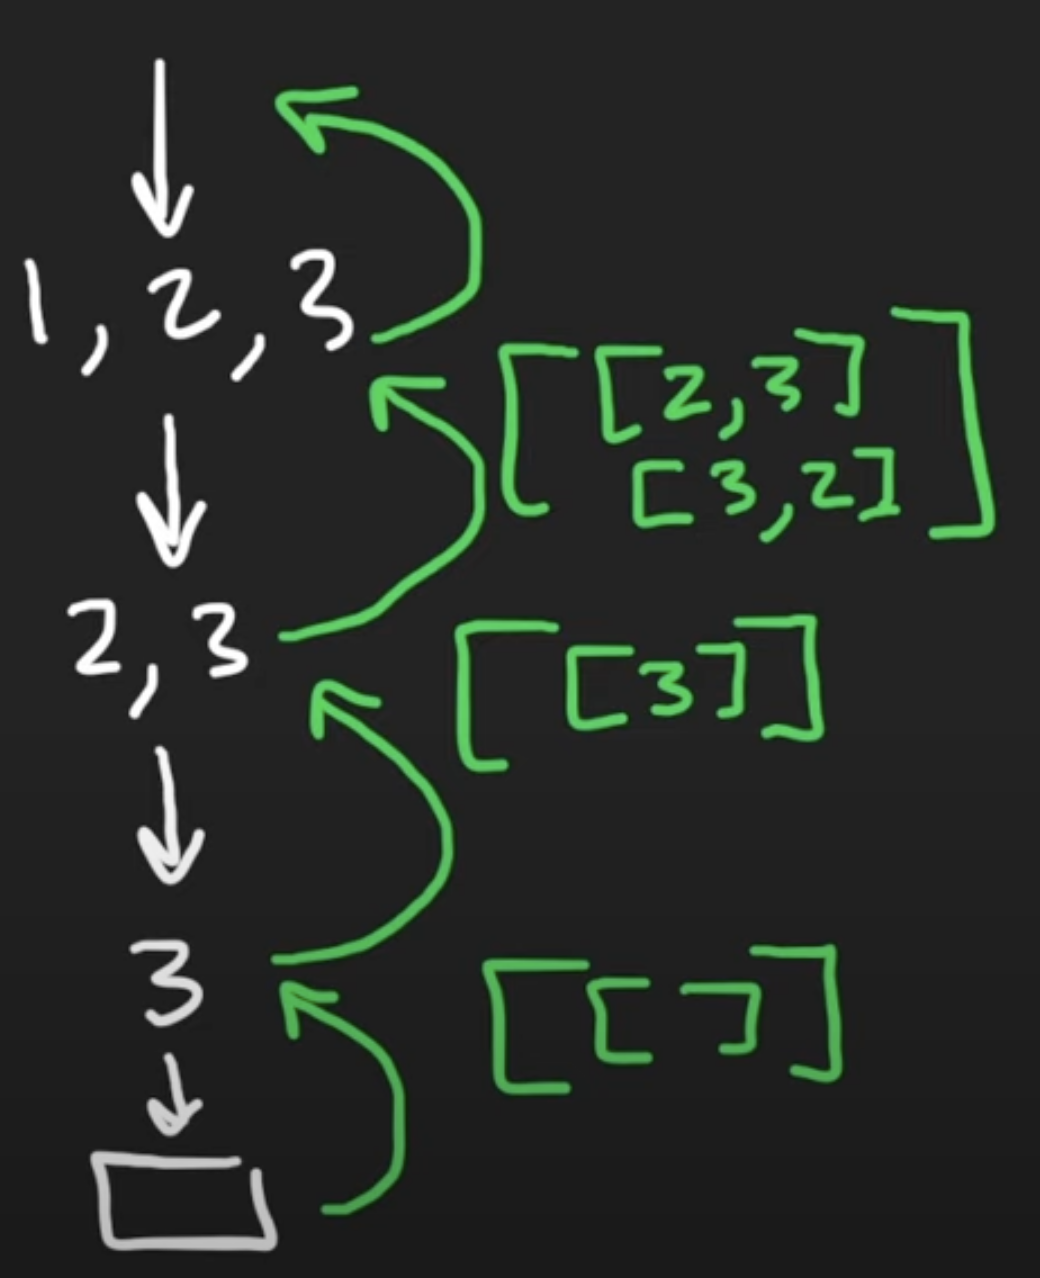 1, 2, 3
[[2,3]
[3,2]]
2, 3
[[3]]
3
[[ ]]